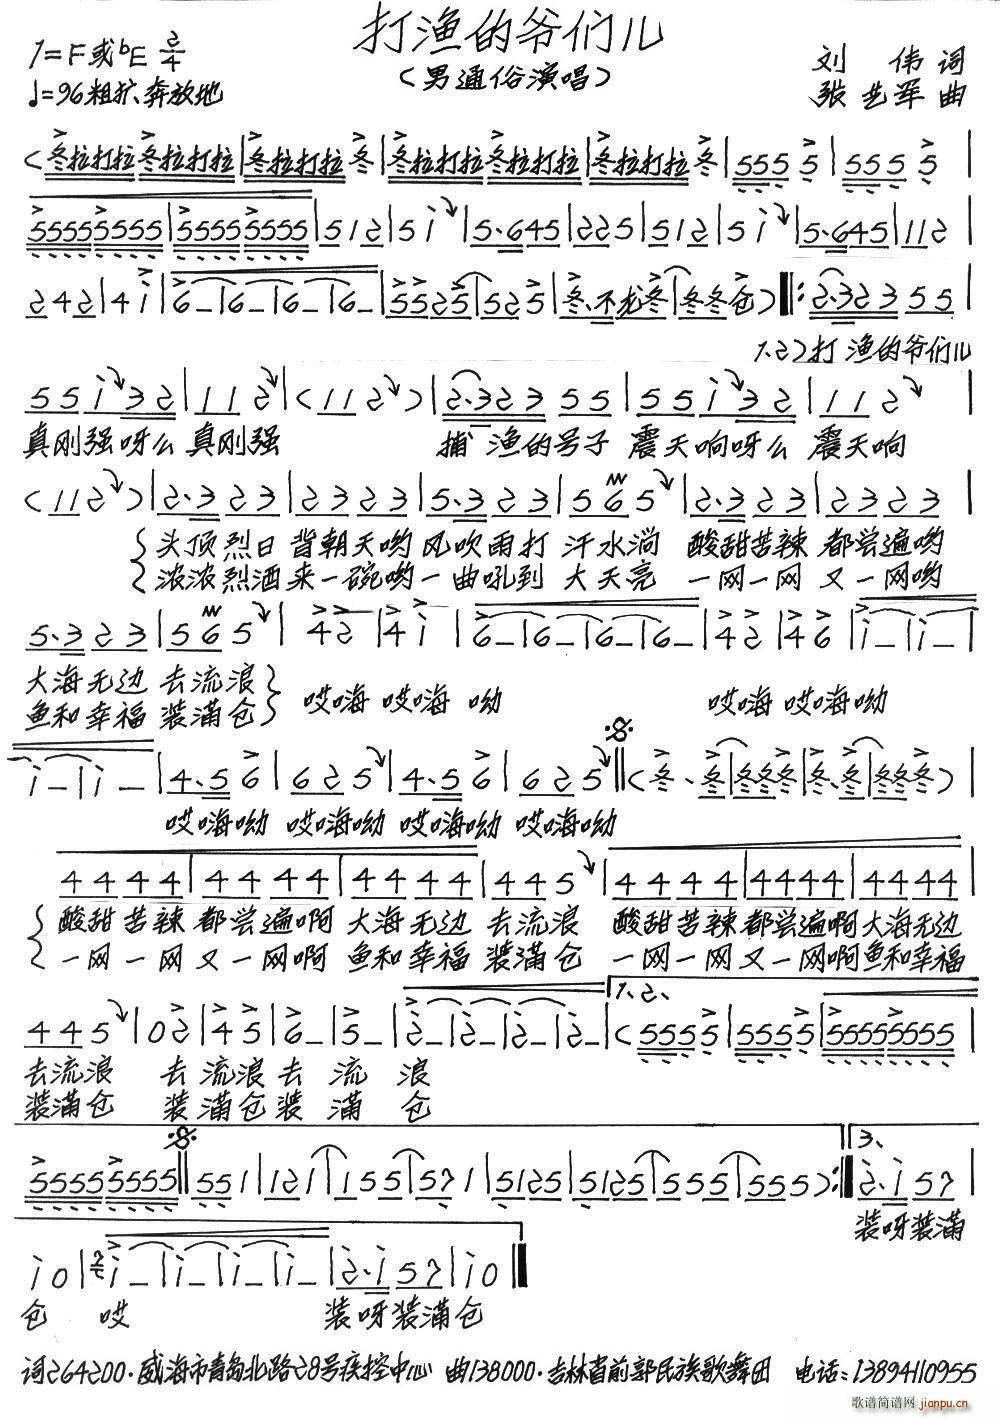 打渔的爷们儿
1=F或bE 2/4
(男通俗演唱)
刘 伟 词
♩=96 粗犷、奔放地
张艺军 曲
(冬拉打拉冬拉打拉|冬拉打拉冬|冬拉打拉冬拉打拉|冬拉打拉冬|555 5|555 5|
55555555|55555555|512|5i|5.645|225|512|5i|5.645|112|
242|4i|6-|6-|6-|6-|5525|525|冬.不龙冬|冬冬仓)‖:2.323 55|
1.2.)打 渔的爷们儿
55i32|112|(112)|2.323 55|55i32|112|
真刚强呀么 真刚强 捕 渔的号子 震天响呀么 震天响
(112)|2.323|2323|5.323|565|2.323|2323|
头顶烈日 背朝天哟 风吹雨打 汗水淌 酸甜苦辣 都尝遍哟
浓浓烈酒 来一碗哟 一曲吼到 大天亮 一网一网 又一网哟
5.323|565|42|4i|6-|6-|6-|6-|42|46|i-|i-|
大海无边 去流浪 哎嗨 哎嗨 呦 哎嗨 哎嗨呦
鱼和幸福 装满仓
i-|i-|4.56|625|4.56|625‖(冬.冬|冬冬冬|冬.冬|冬冬冬)|
哎嗨呦 哎嗨呦 哎嗨呦 哎嗨呦
4444|4444|4444|445|4444|4444|4444|
酸甜苦辣 都尝遍啊 大海无边 去流浪 酸甜苦辣都尝遍啊大海无边
一网一网 又一网啊 鱼和幸福 装满仓 一网一网又一网啊鱼和幸福
1.2.
445|02|45|6-|5-|2-|2-|2-|2-|(5555|5555|55555555|
去流浪 去流浪去 流 浪
装满仓 装满仓装 满 仓
3.
55555555‖551|121|155|557 1|5125|5125|555|555):‖2.i57|
装呀装满
i0|i-|i-|i-|i-|2.i57|i0‖
仓 哎 装呀装满仓
词264200·威海市青岛北路28号疾控中心 曲138000·吉林省前郭民族歌舞团 电话:13894110955
歌谱简谱网
jianpu.cn